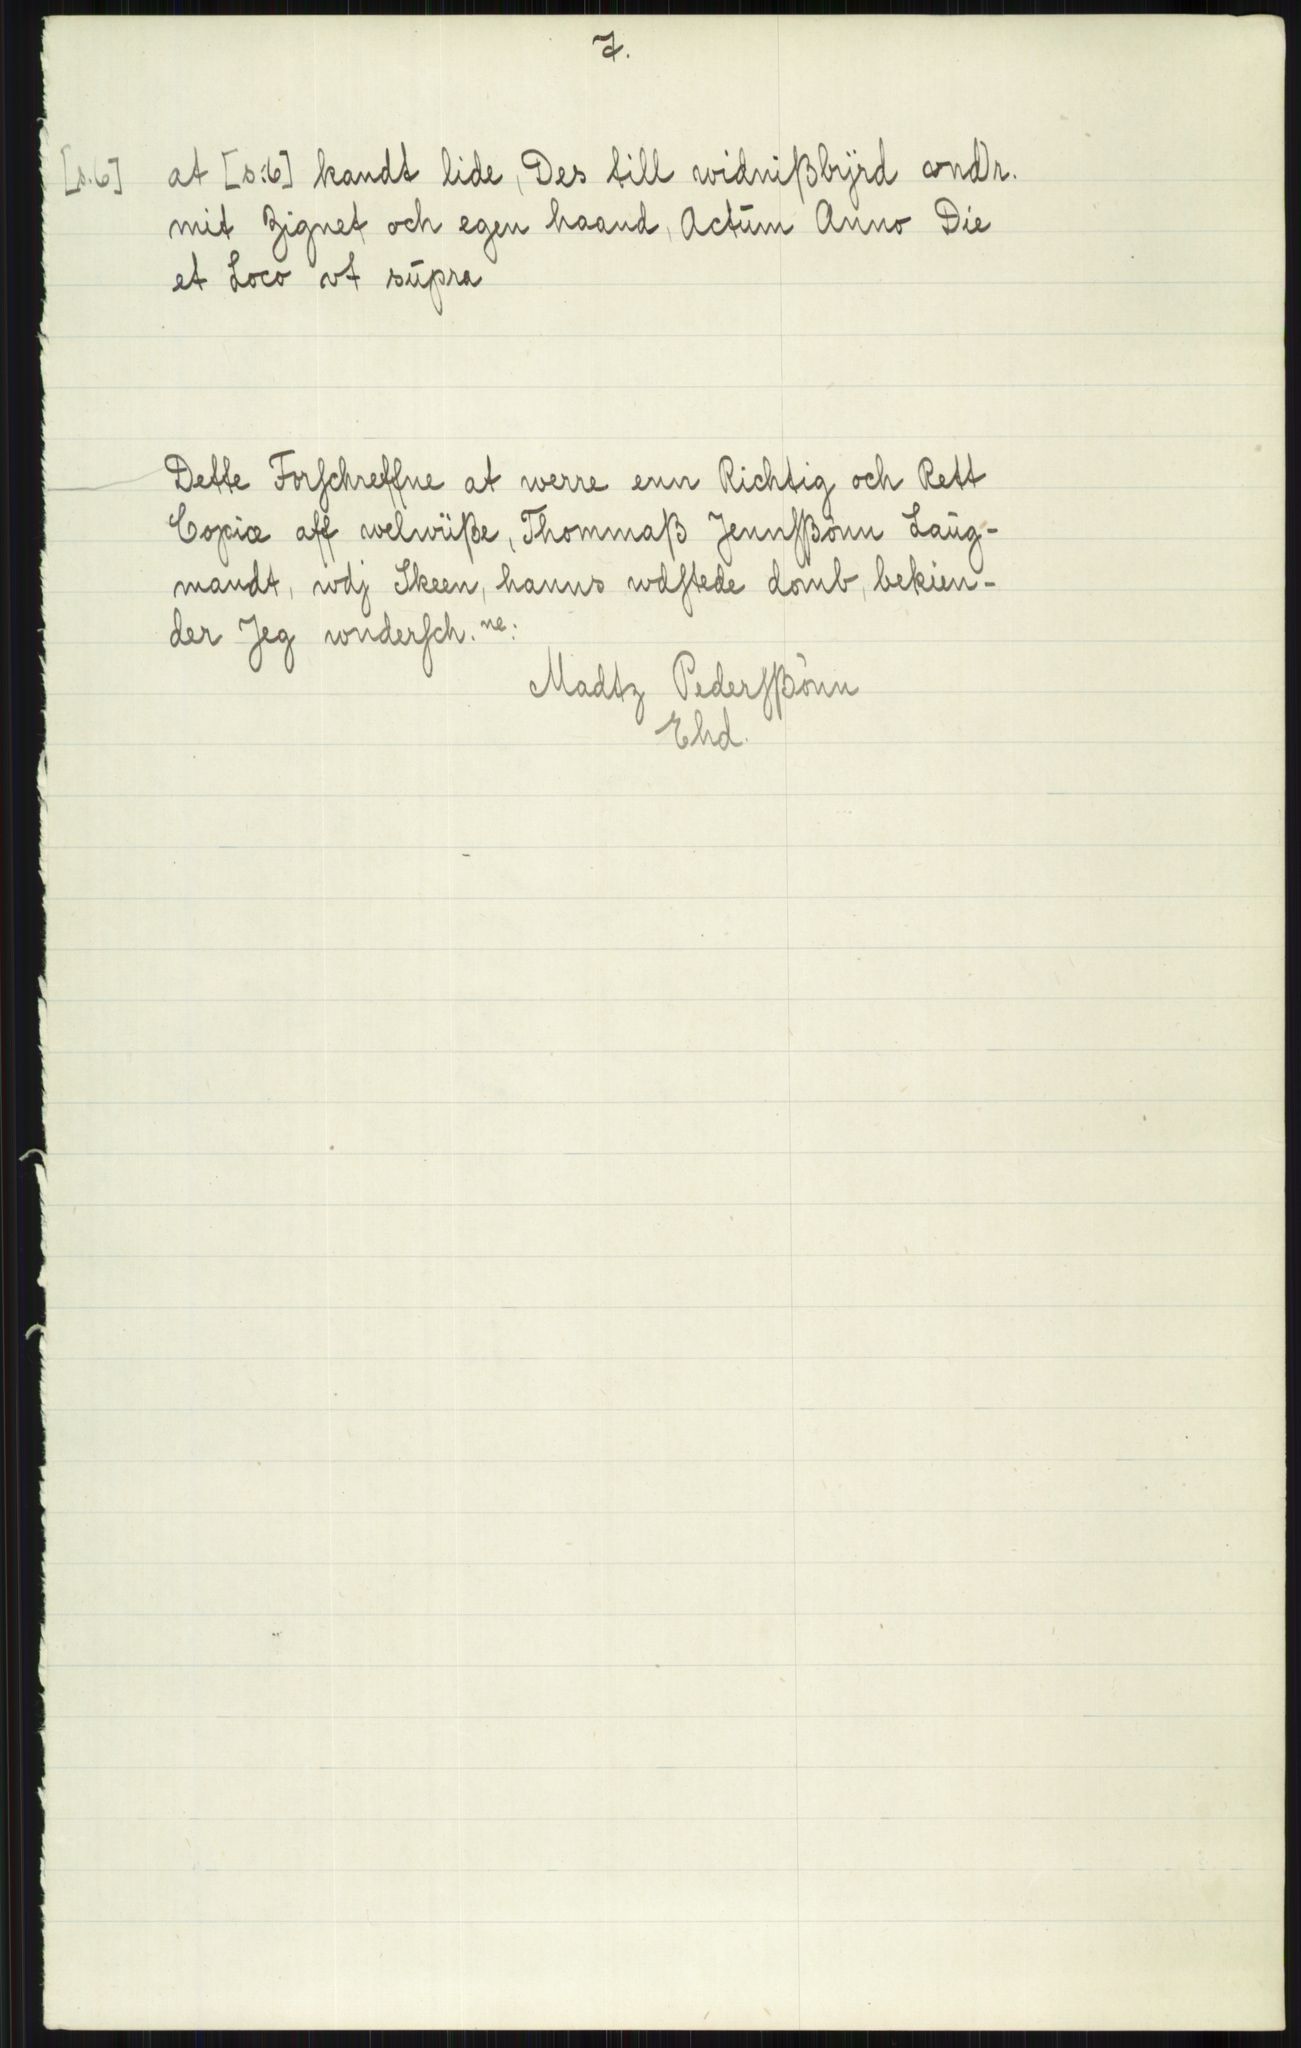 7.
[s.6] at [s:6] kandt lide, Des till widnißbÿrd ondr.
mit Zignet och egen haand, Actūm Anno Die
et Loco vt sūpra
Dette Forschreffne at werre enn Richtig och Rett
Copiæ aff welwüße, Thommaß Jennsßönn Laūg-
mandt, wdj Skeen, hanns wdstede domb, bekien-
der Jeg wndersch. ne:
Madtz Pedersßönn
Ehd.